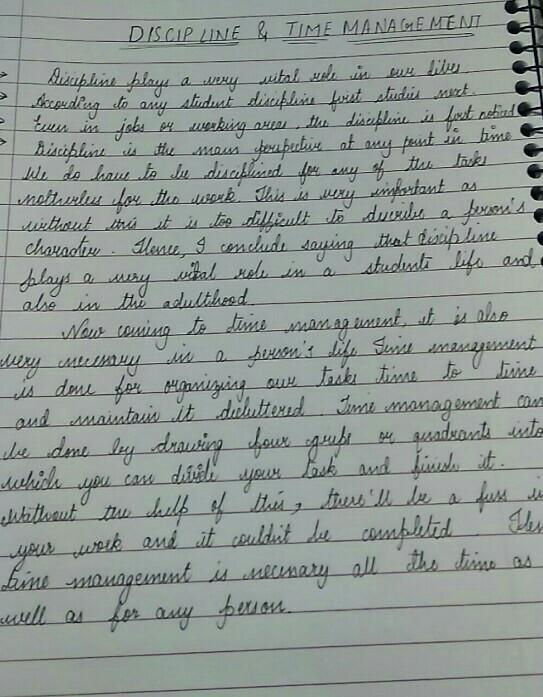 DISCIPLINE & TIME MANAGEMENT
Discipline plays a very vital role in our lives.
According to any student discipline first studies next.
Even in jobs or working areas, the discipline is first noticed
Discipline is the main perspective at any point in time
We do have to be disciplined for any of the tasks
notherless for the work. This is very important as
without this it is too difficult to describe a person's
character. Hence, I conclude saying that discipline
plays a very vital role in a students life and
also in the adulthood.
Now coming to time management, it is also
very necessary in a person's life. Time management
is done for organizing our tasks time to time
and maintain it decluttered. Time management can
be done by drawing four grids or quadrants into
which you can divide your task and finish it.
Without the help of this, there'll be a fuss in
your work and it couldn't be completed.
time management is necessary all the time as
well as for any person.